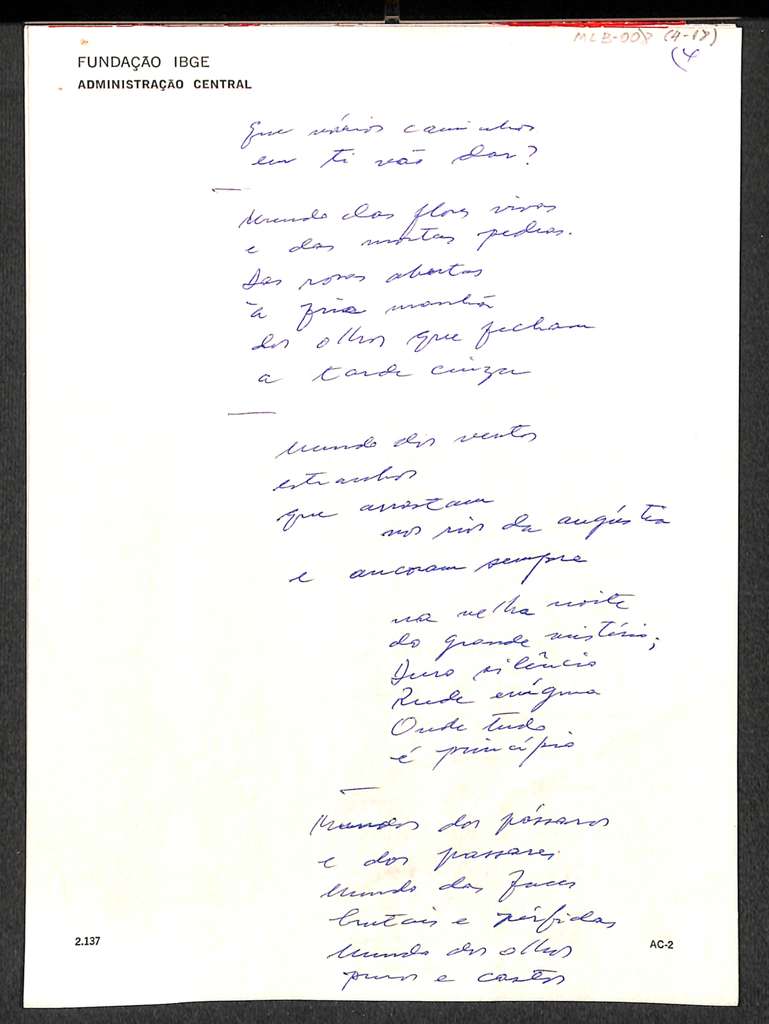 MLB-008 (4-17)
(4
FUNDAÇÃO IBGE
ADMINISTRAÇÃO CENTRAL
Que vários caminhos
em ti vão dar?
Mundo das flores vivas
e das mortas pedras.
Das rosas abertas
à fria manhã
dos olhos que fecham
a tarde cinza
Mundo dos ventos
estranhos
que arrastam
nos rios da angústia
e ancoram sempre
na velha noite
do grande mistério;
Duro silêncio
Rude enígma
Onde tudo
é princípio
Mundos dos pássaros
e dos passares
Mundo das faces
brutais e pérfidas
Mundo dos olhos
puros e castos
2.137
AC-2